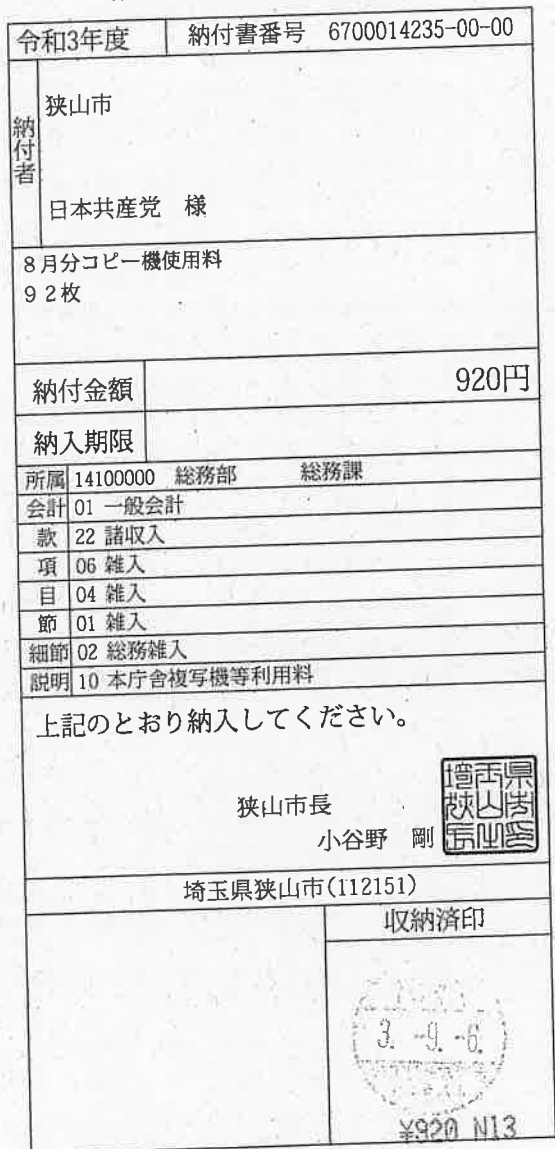 令和3年度 納付書番号 6700014235-00-00
納付者
狭山市
日本共産党 様
8月分コピー機使用料
92枚
納付金額 920円
納入期限
所属 14100000 総務部 総務課
会計 01 一般会計
款 22 諸収入
項 06 雑入
目 04 雑入
節 01 雑入
細節 02 総務雑入
説明 10 本庁舎複写機等利用料
上記のとおり納入してください。
狭山市長
小谷野 剛
埼玉県狭山市(112151)
収納済印
3. -9. -6.
¥920 N13